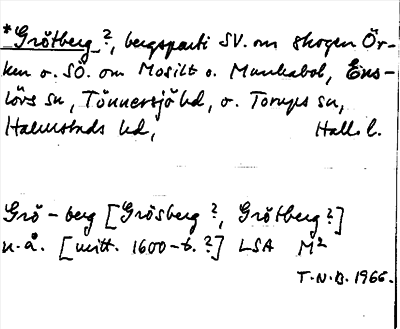 *Grötberg ?, bergsparti SV. om skogen Ör-
ken o. SÖ. om Mosilt o. Munkabol, Ens-
lövs sn, Tönnersjö hd, o. Torups sn,
Halmstads hd, Hall. l.
Grö-berg [Grösberg ?, Grötberg ?]
u.å. [mitt. 1600-t. ?] LSA M2
T.N.D. 1966.